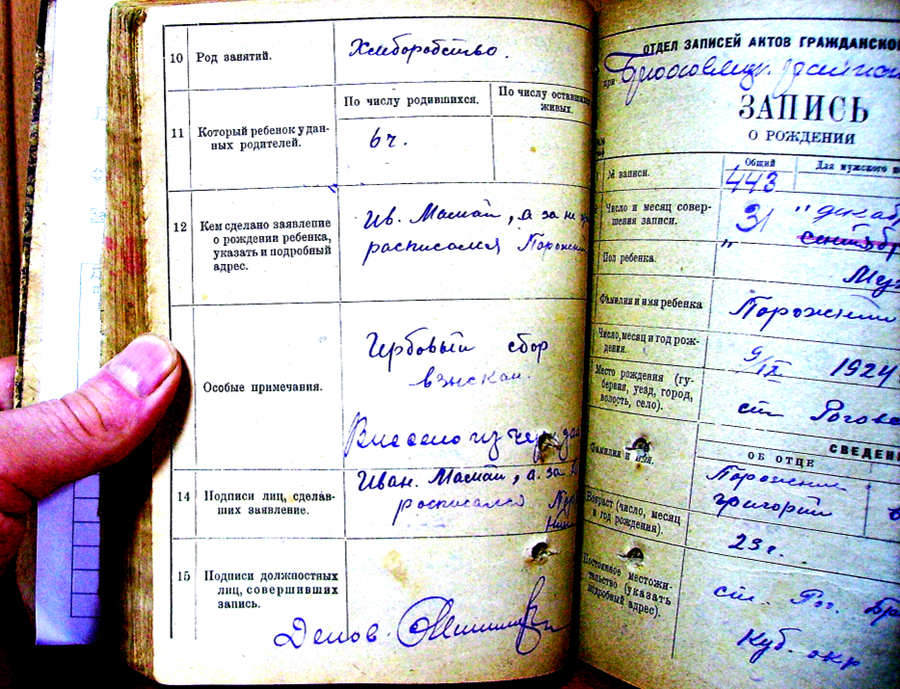 10 Род занятий. Хлиборобство.
По числу родившихся. По числу оставши
живых.
11 Который ребенок у дан-
ных родителей. 6ч.
12 Кем сделано заявление
о рождении ребенка,
указать и подробный
адрес.
Ив. Мамай, а за не
расписался Порожни
Особые примечания.
Гербовый сбор
взыскан.
Внесено из
14 Подписи лиц, сделав-
ших заявление.
Иван. Мамай, а. за
росписался
15 Подписи должностных
лиц, совершивших
запись.
ОТДЕЛ ЗАПИСЕЙ АКТОВ ГРАЖДАНСКО
при
ЗАПИСЬ
О РОЖДЕНИИ
№ записи. Общий Для мужского
443
Число и месяц совер-
шения записи. 31 " декаб
сентябр
Пол ребенка. " Му
Фамилия и имя ребенка
Порожний
Число, месяц и год рож-
дения. 9/IX 1924
Место рождения (гу-
берния, уезд, город,
волость, село).
ст Рогов
СВЕДЕН
ОБ ОТЦЕ
Фамилия и имя. Порожний
Григорий
Возраст (число, месяц
и год рождения). 23 г.
Постоянное местожи-
тельство (указать
подробный адрес).
ст. Рог. Бр
Куб. окр